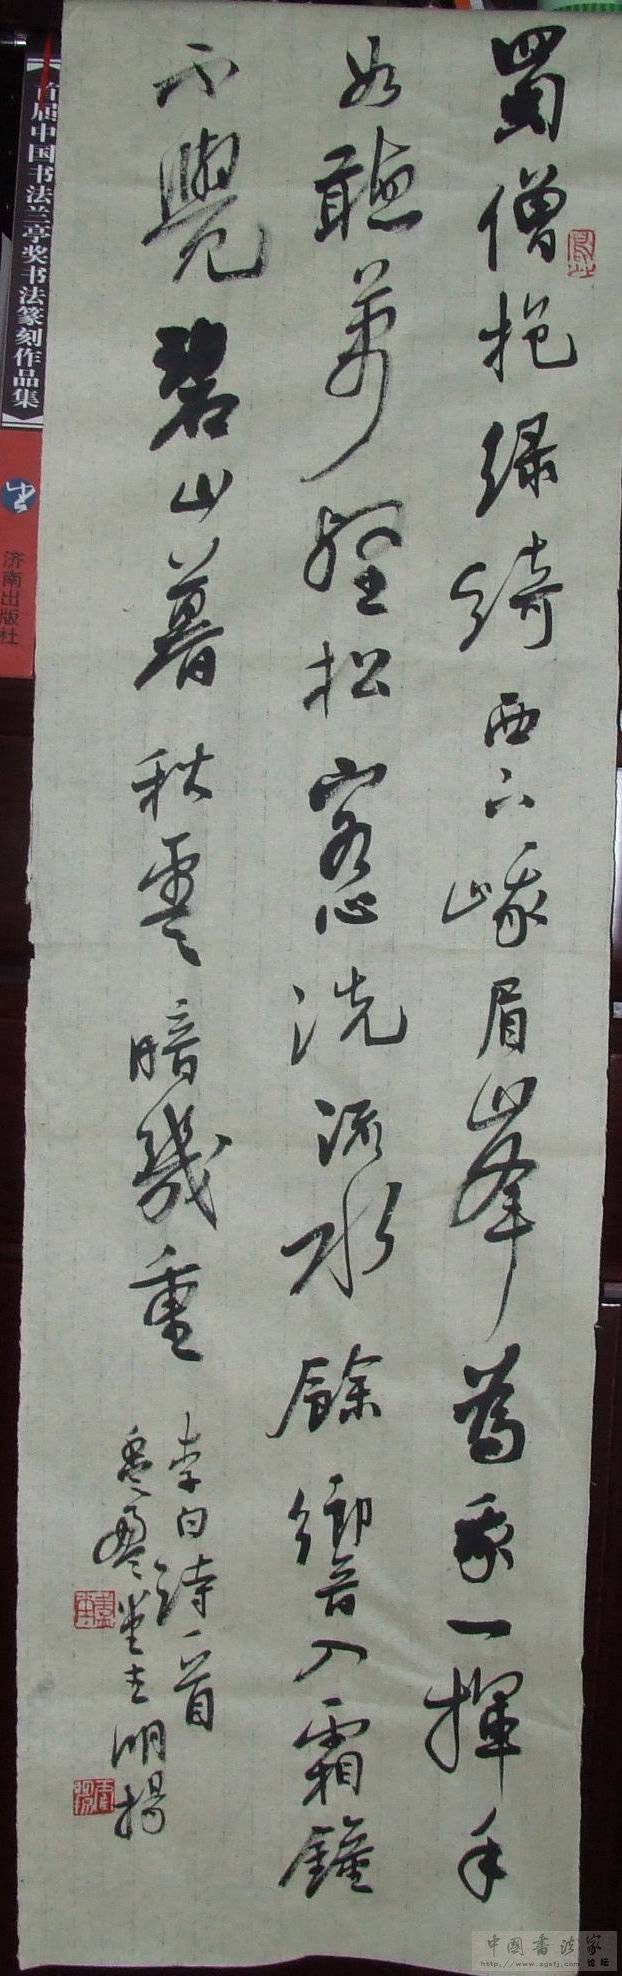 蜀僧抱绿綺西下峨眉峯為我一揮手
如聽萬壑松客心洗流水餘響入霜鐘
不覺碧山暮秋雲暗幾重
李白詩一首
堂主明揚
首届中国书法兰亭奖书法篆刻作品集
济南出版社
中國書法家
论坛
http://www.zgsfj.com